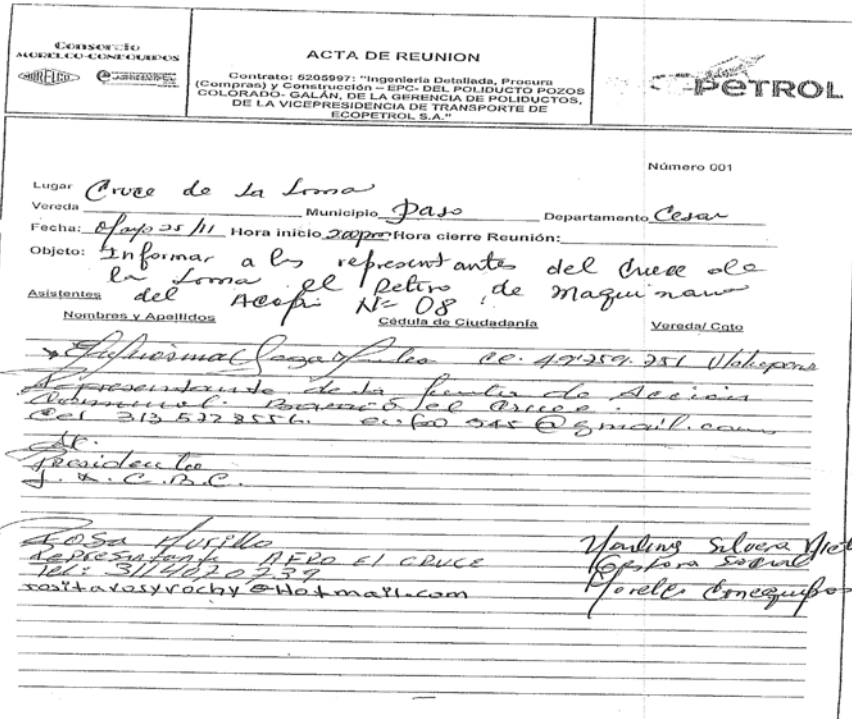 Consorcio
MORELCO-CONEQUIPOS
MORELCO
ACTA DE REUNION
Contrato: 5205997: "Ingeniería Detallada, Procura
(Compras) y Construcción – EPC- DEL POLIDUCTO POZOS
COLORADO- GALÁN, DE LA GERENCIA DE POLIDUCTOS,
DE LA VICEPRESIDENCIA DE TRANSPORTE DE
ECOPETROL S.A."
PETROL
Número 001
Lugar Cruce de la Loma
Vereda Municipio Paso Departamento Cesar
Fecha: 25/11 Hora inicio 2:00pm Hora cierre Reunión:
Objeto: Informar a los representantes del Cruce de
la Loma el Retiro de Maquinaria
Asistentes del Acopio Nº 08.
Nombres y Apellidos Cédula de Ciudadanía Vereda/ Cgto
cc.
Representante de la Junta de Acción
Comunal Barrio el Cruce.
Cel 313 5328556. @gmail.com
Presidente
J.A.C.B.C.
Rosa Murillo
Representante AFRO El CRUCE
Tel: 3114020739
rositarosyrochy@Hotmail.com
Silvera
Gestora Social
Morelco Conequipos